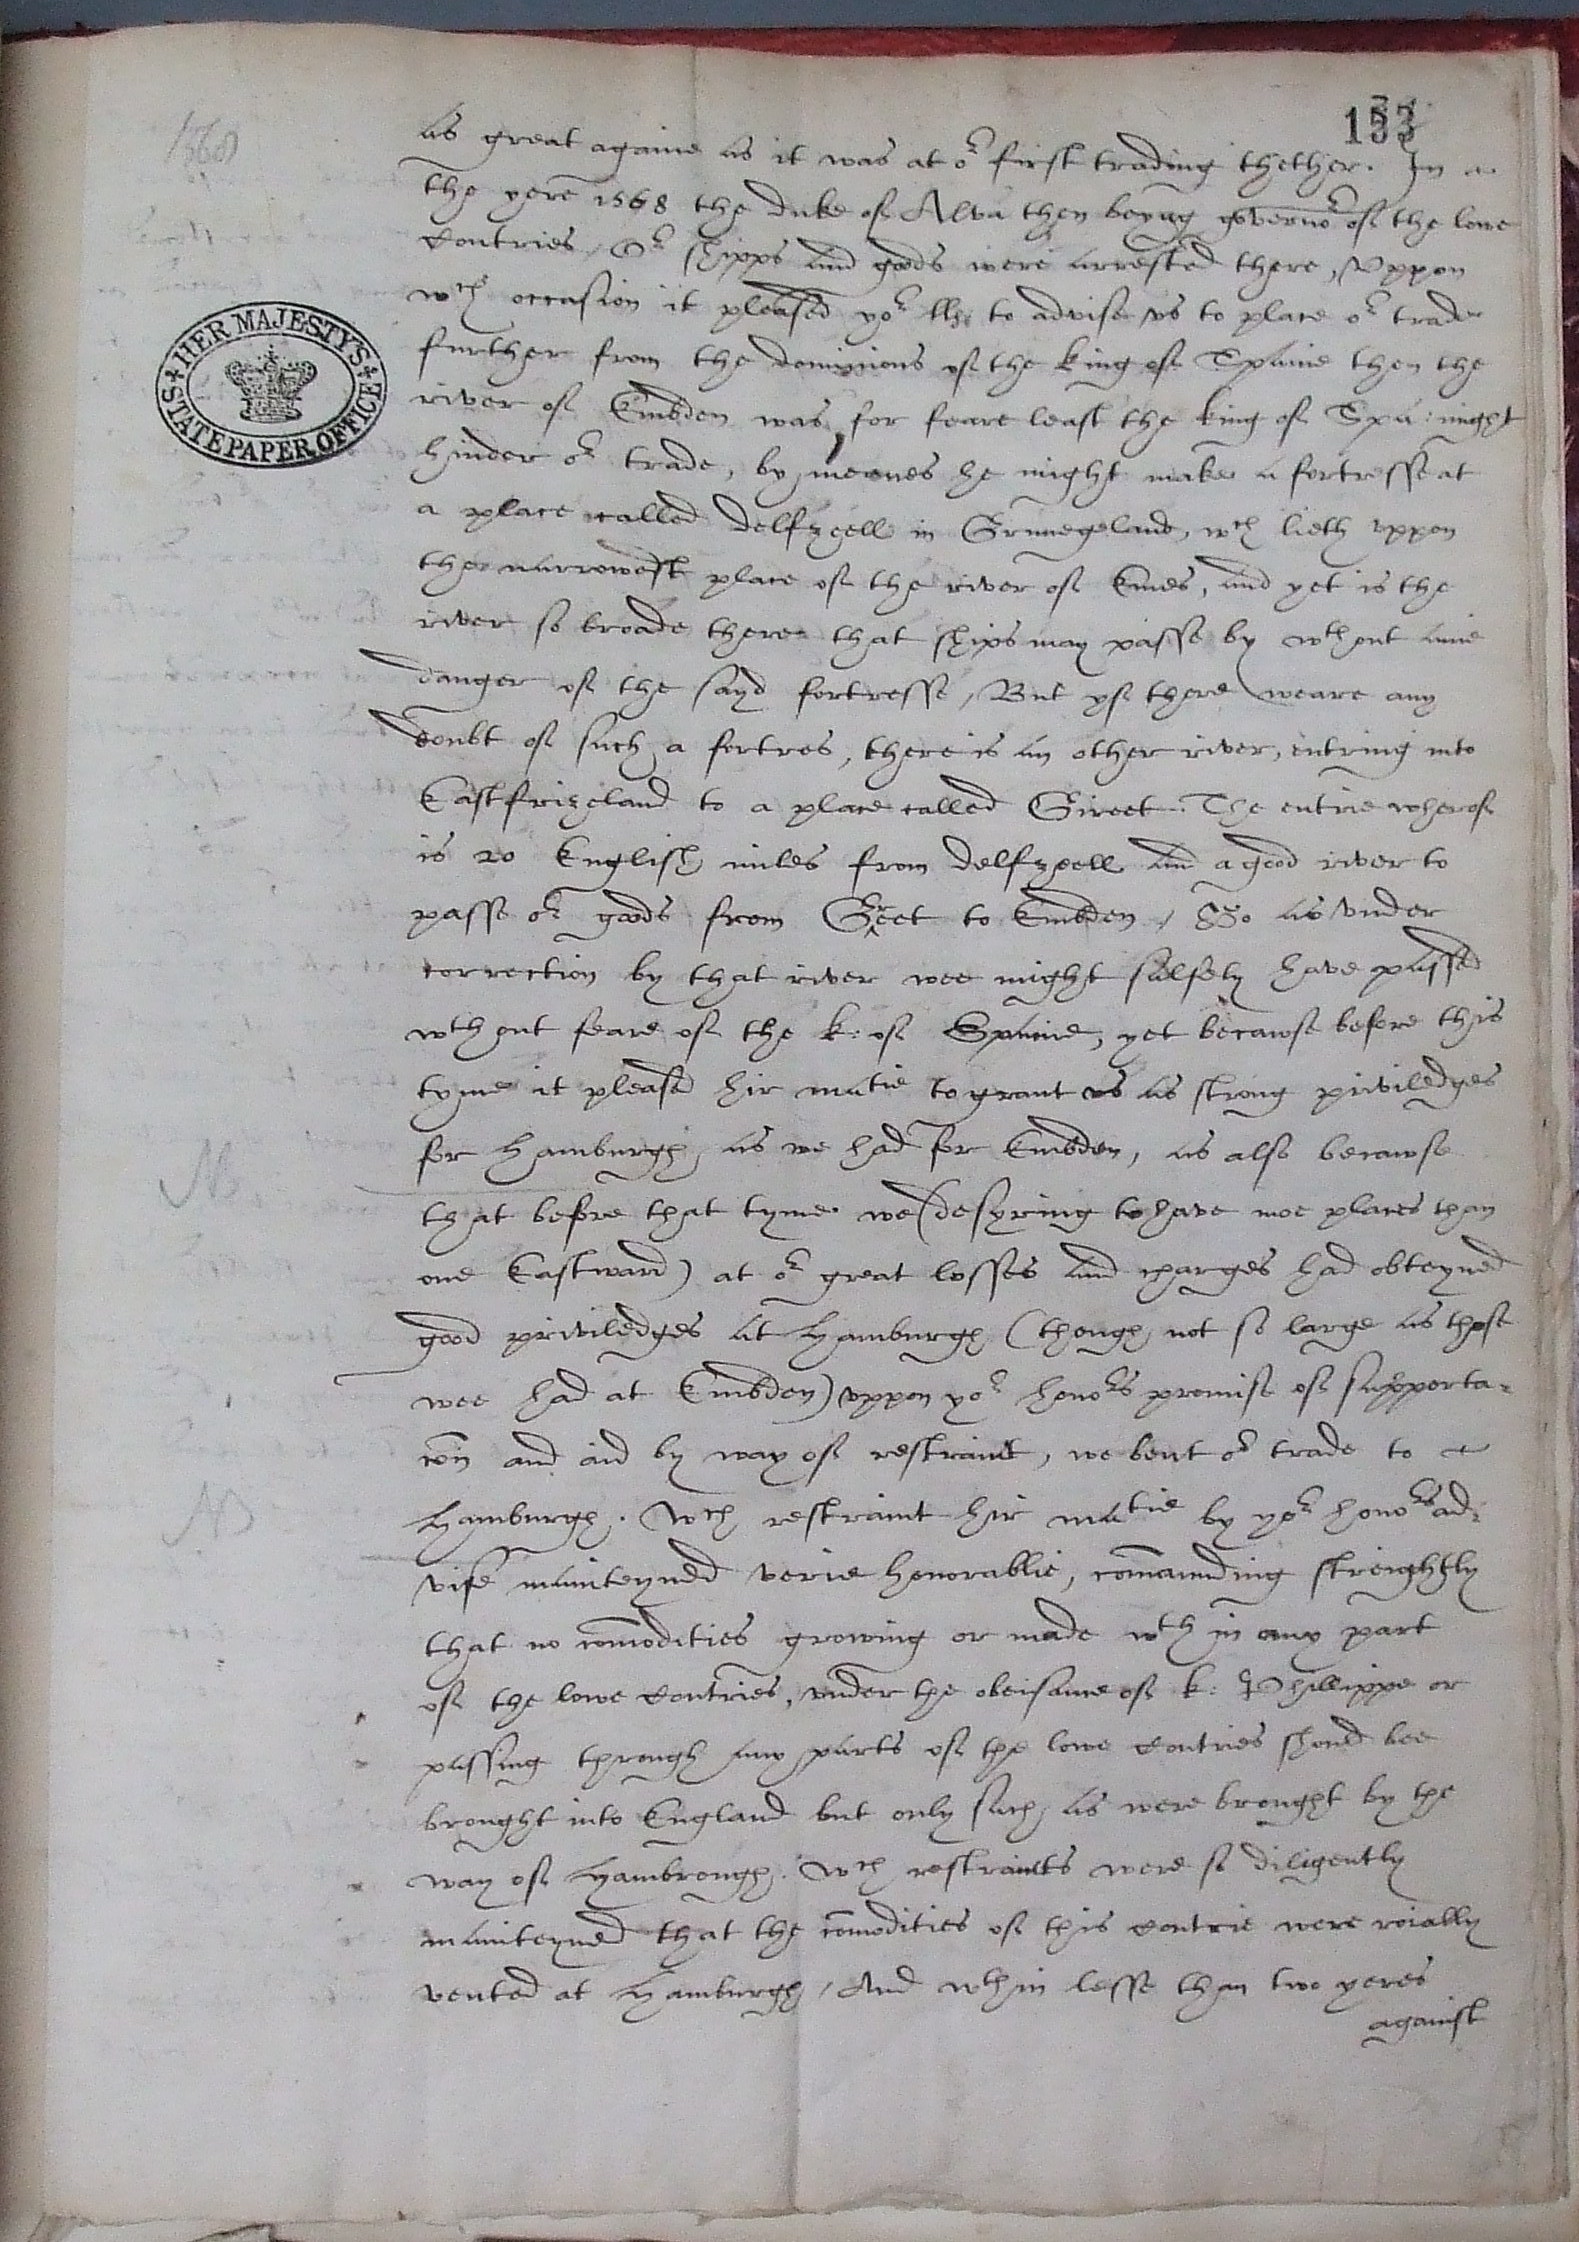 153
1568
as great againe as it was at or first trading thether. In a
the yere 1568 the duke of Alva then beyng governor of the lowe
Contries, Or shipps and goods were arrested there, Vppon
wch occasion it pleased yor llps to advise vs to place or trade
further from the dominions of the king of Spaine then the
river of Embden was, for feare least the king of Spa: might
HER MAJESTY'S STATE PAPER OFFICE
hinder or trade, by meanes he might make a fortresse at
a place called delfzeell in Grunegeland, wch lieth vppon
the narrowest place of the river of Emes, and yet is the
river so broade there that ships may passe by wthout anie
danger of the sayd fortresse, But yf there weare any
doubt of such a fortres, there is an other river, entring into
Eastfrizeland to a place called Greet. The entrie wherof
is 20 English miles from delfzeell and a good river to
passe or goods from Greet to Embden, So as vnder
correction by that river wee might salfely have passed
wthout feare of the k: of Spaine, yet becawse before this
tyme it pleased hir matie to grant vs as strong priviledges
for Hamburgh, as we had for Embden, as also becawse
that before that tyme we (desyring to have moe places than
one Eastward) at or great losses and charges had obteyned
good priviledges at Hamburgh (though not so large as those
wee had at Embden) vppon yor honors promise of supporta-
con and aid by way of restraint, we bent or trade to
Hamburgh. Wch restraint hir matie by yor honors ad-
vise mainteyned verie honorablie, comaunding streightly
that no comodities growing or made wthin any part
of the lowe Contries, vnder the obeisance of k: Phillippe or
passing through any parts of the lowe Contries should bee
brought into England but only such as were brought by the
way of Hambrough. Wch restraints were so diligently
mainteyned that the comodities of this Contrie were roially
vented at Hamburgh, And wthin lesse than two yeres
against